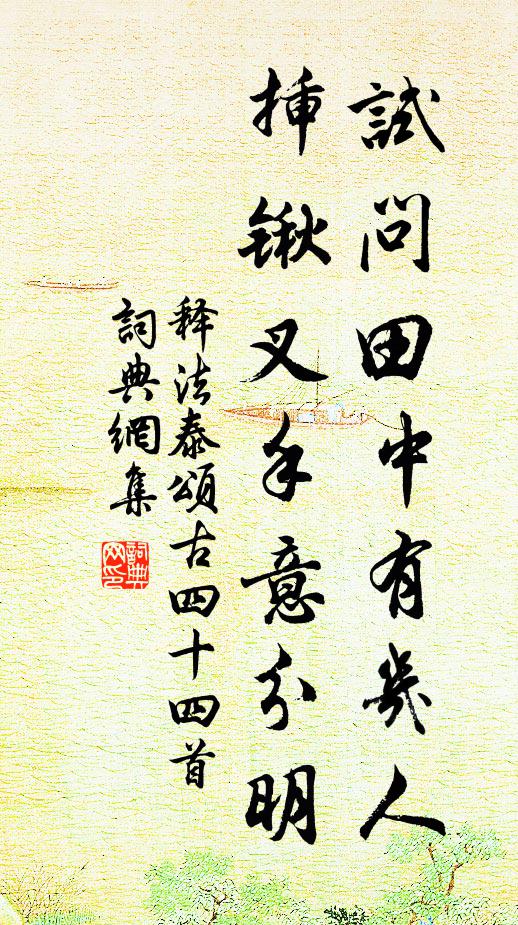 試問田中有幾人
插鍬叉手意分明
释法泰頌古四十四首
詞典網集
詞典网印